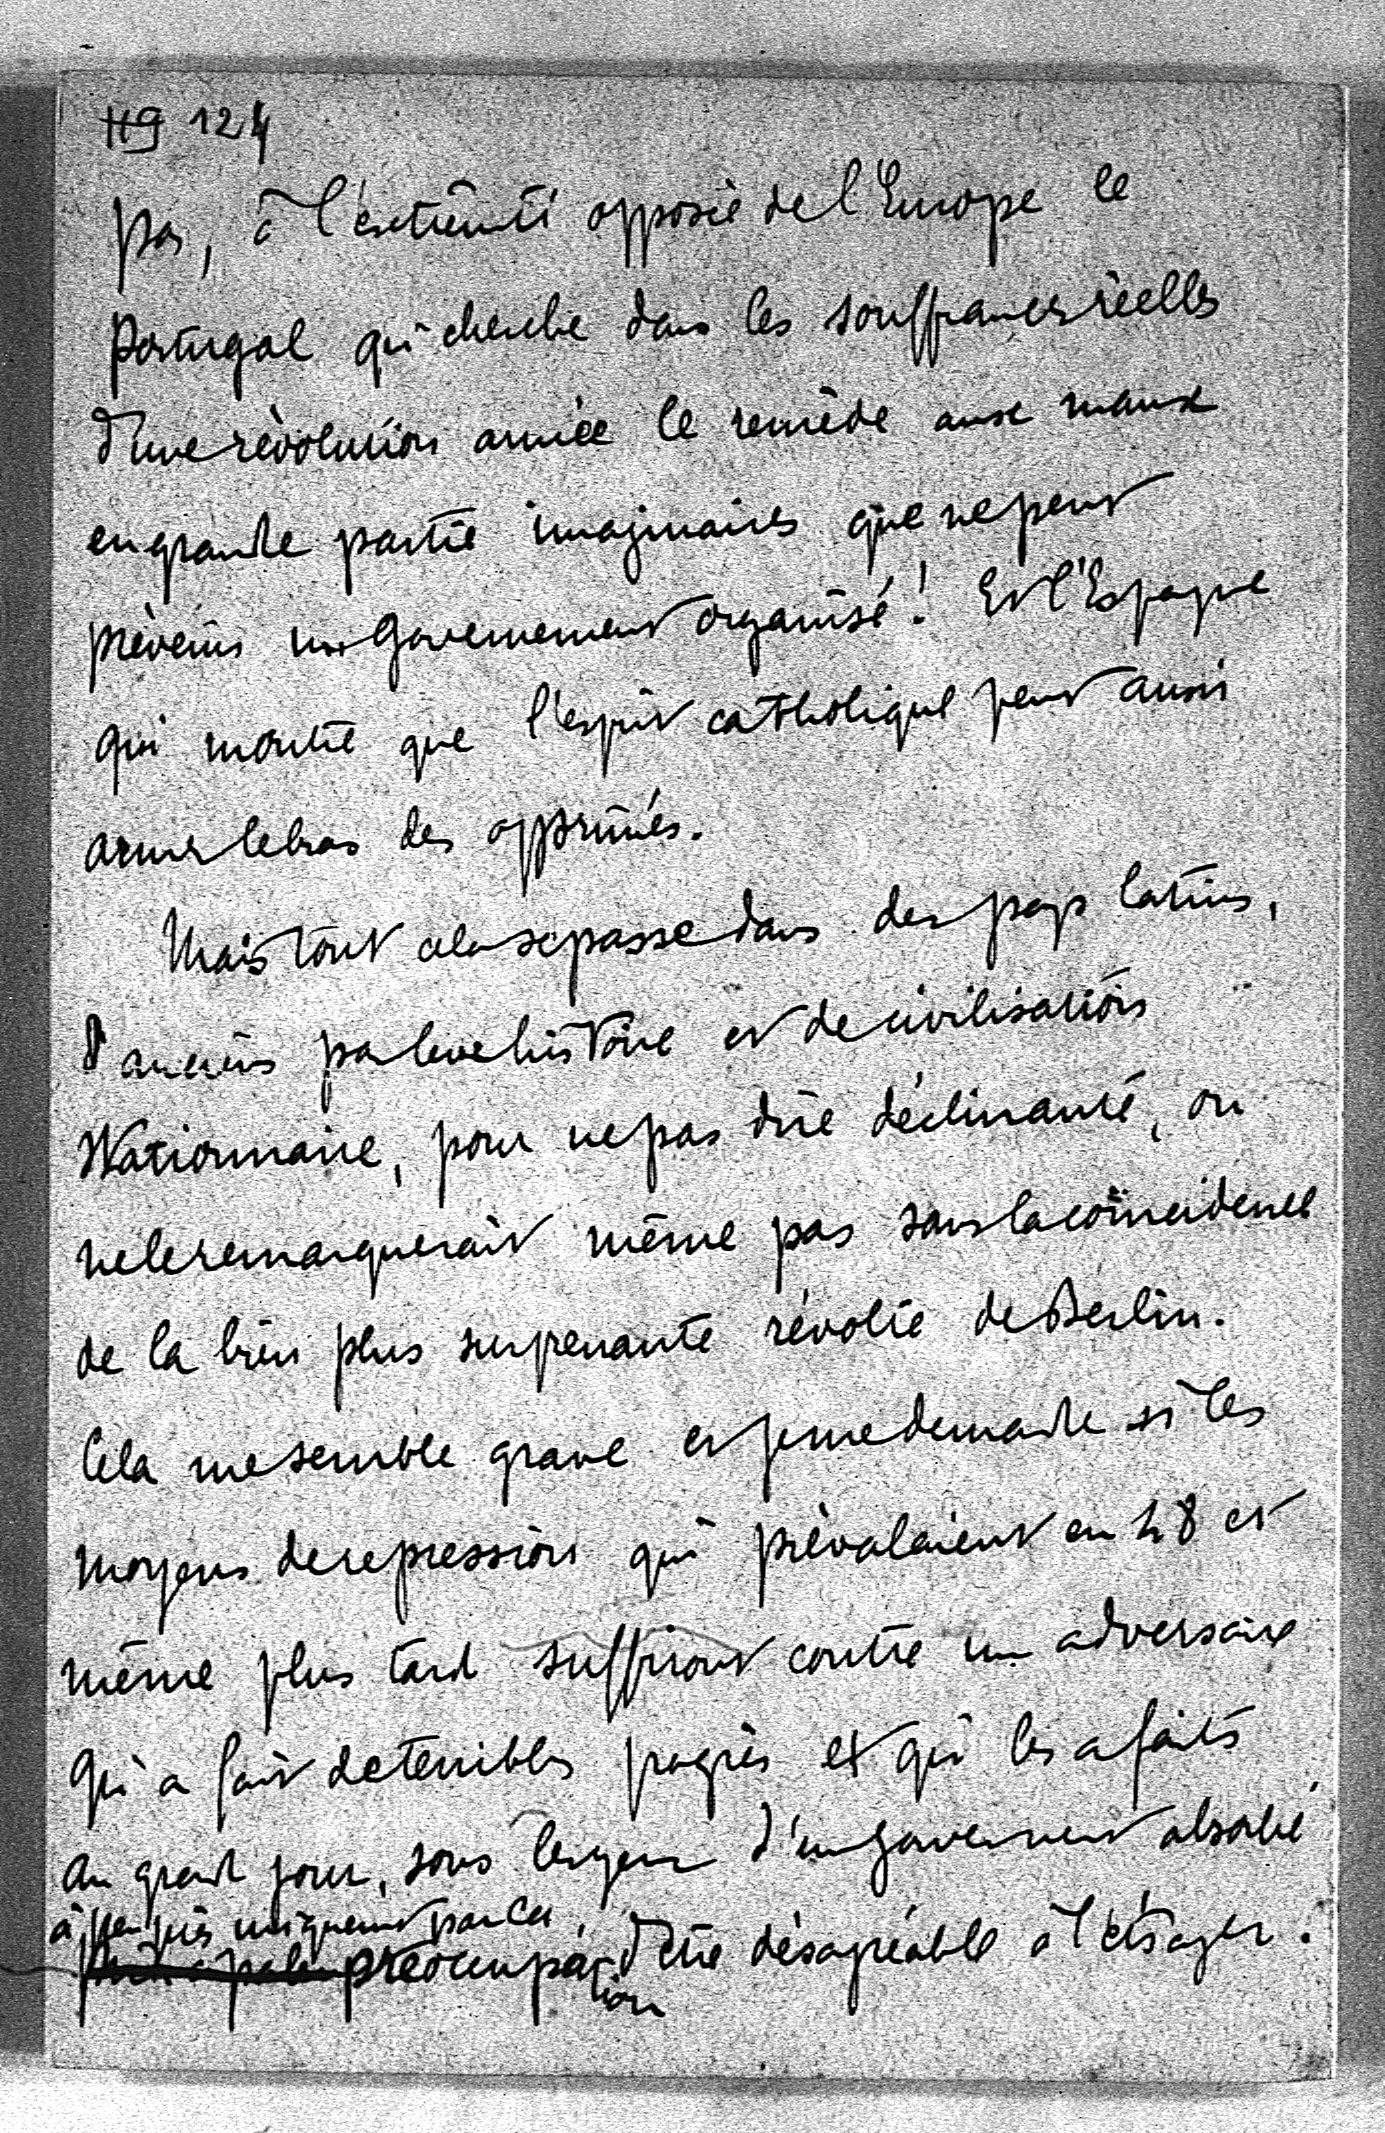 119 124
pas, à l'extrémité opposée de l'Europe le
Portugal qui cherche dans les souffrances réelles
d'une révolution armée le remède aux maux
en grande partie imaginaires que ne peut
prévenir un Gouvernement organisé! Et l'Espagne
qui montre que l'esprit catholique peut aussi
armer le bras des opprimés.
Mais tout cela se passe dans des pays latins,
d'anciens par leur histoire et de civilisation
stationnaire, pour ne pas dire déclinante, on
ne le remarquerait même pas sans la coïncidence
de la bien plus surprenante révolte de Berlin.
Cela me semble grave et je me demande si les
moyens de repression qui prévalaient en 48 et
même plus tard suffiront contre un adversaire
qui a fait de terribles progrès et qui les a faits
au grand jour, sous les yeux d'un gouvernement absorbé
à peu près uniquement par la
préoccupation d'être désagréable à l'étranger.